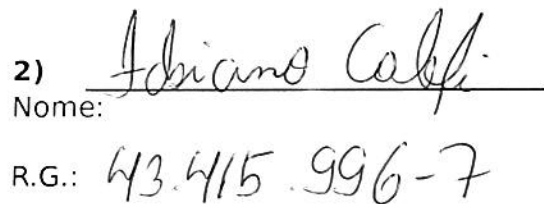 2) Adriano
Nome:
R.G.: 43.415.996-7